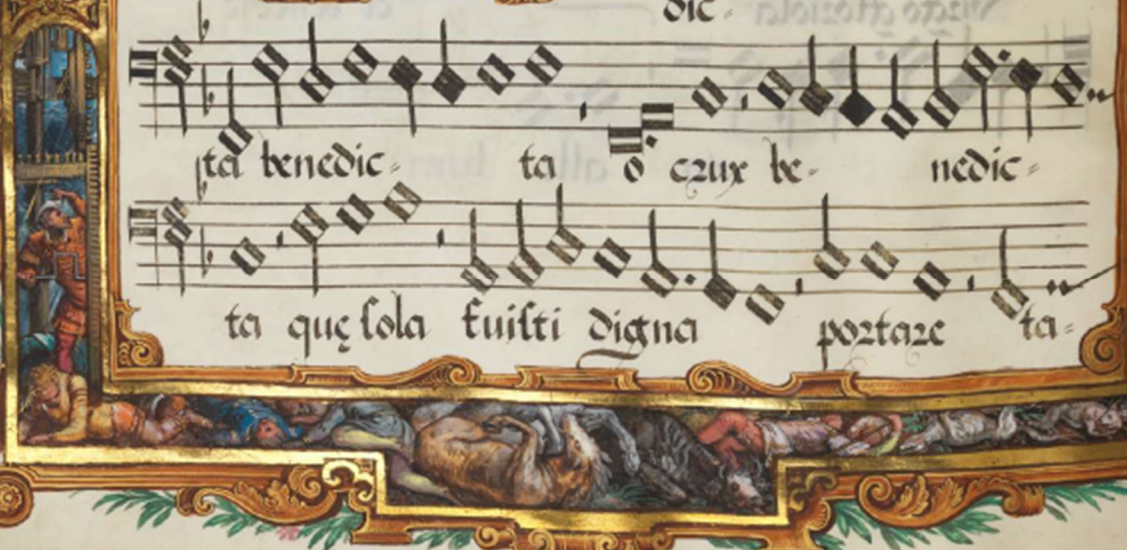 dic-
ta benedic- ta o crux be- nedic-
ta quę sola fuisti digna portare ta-